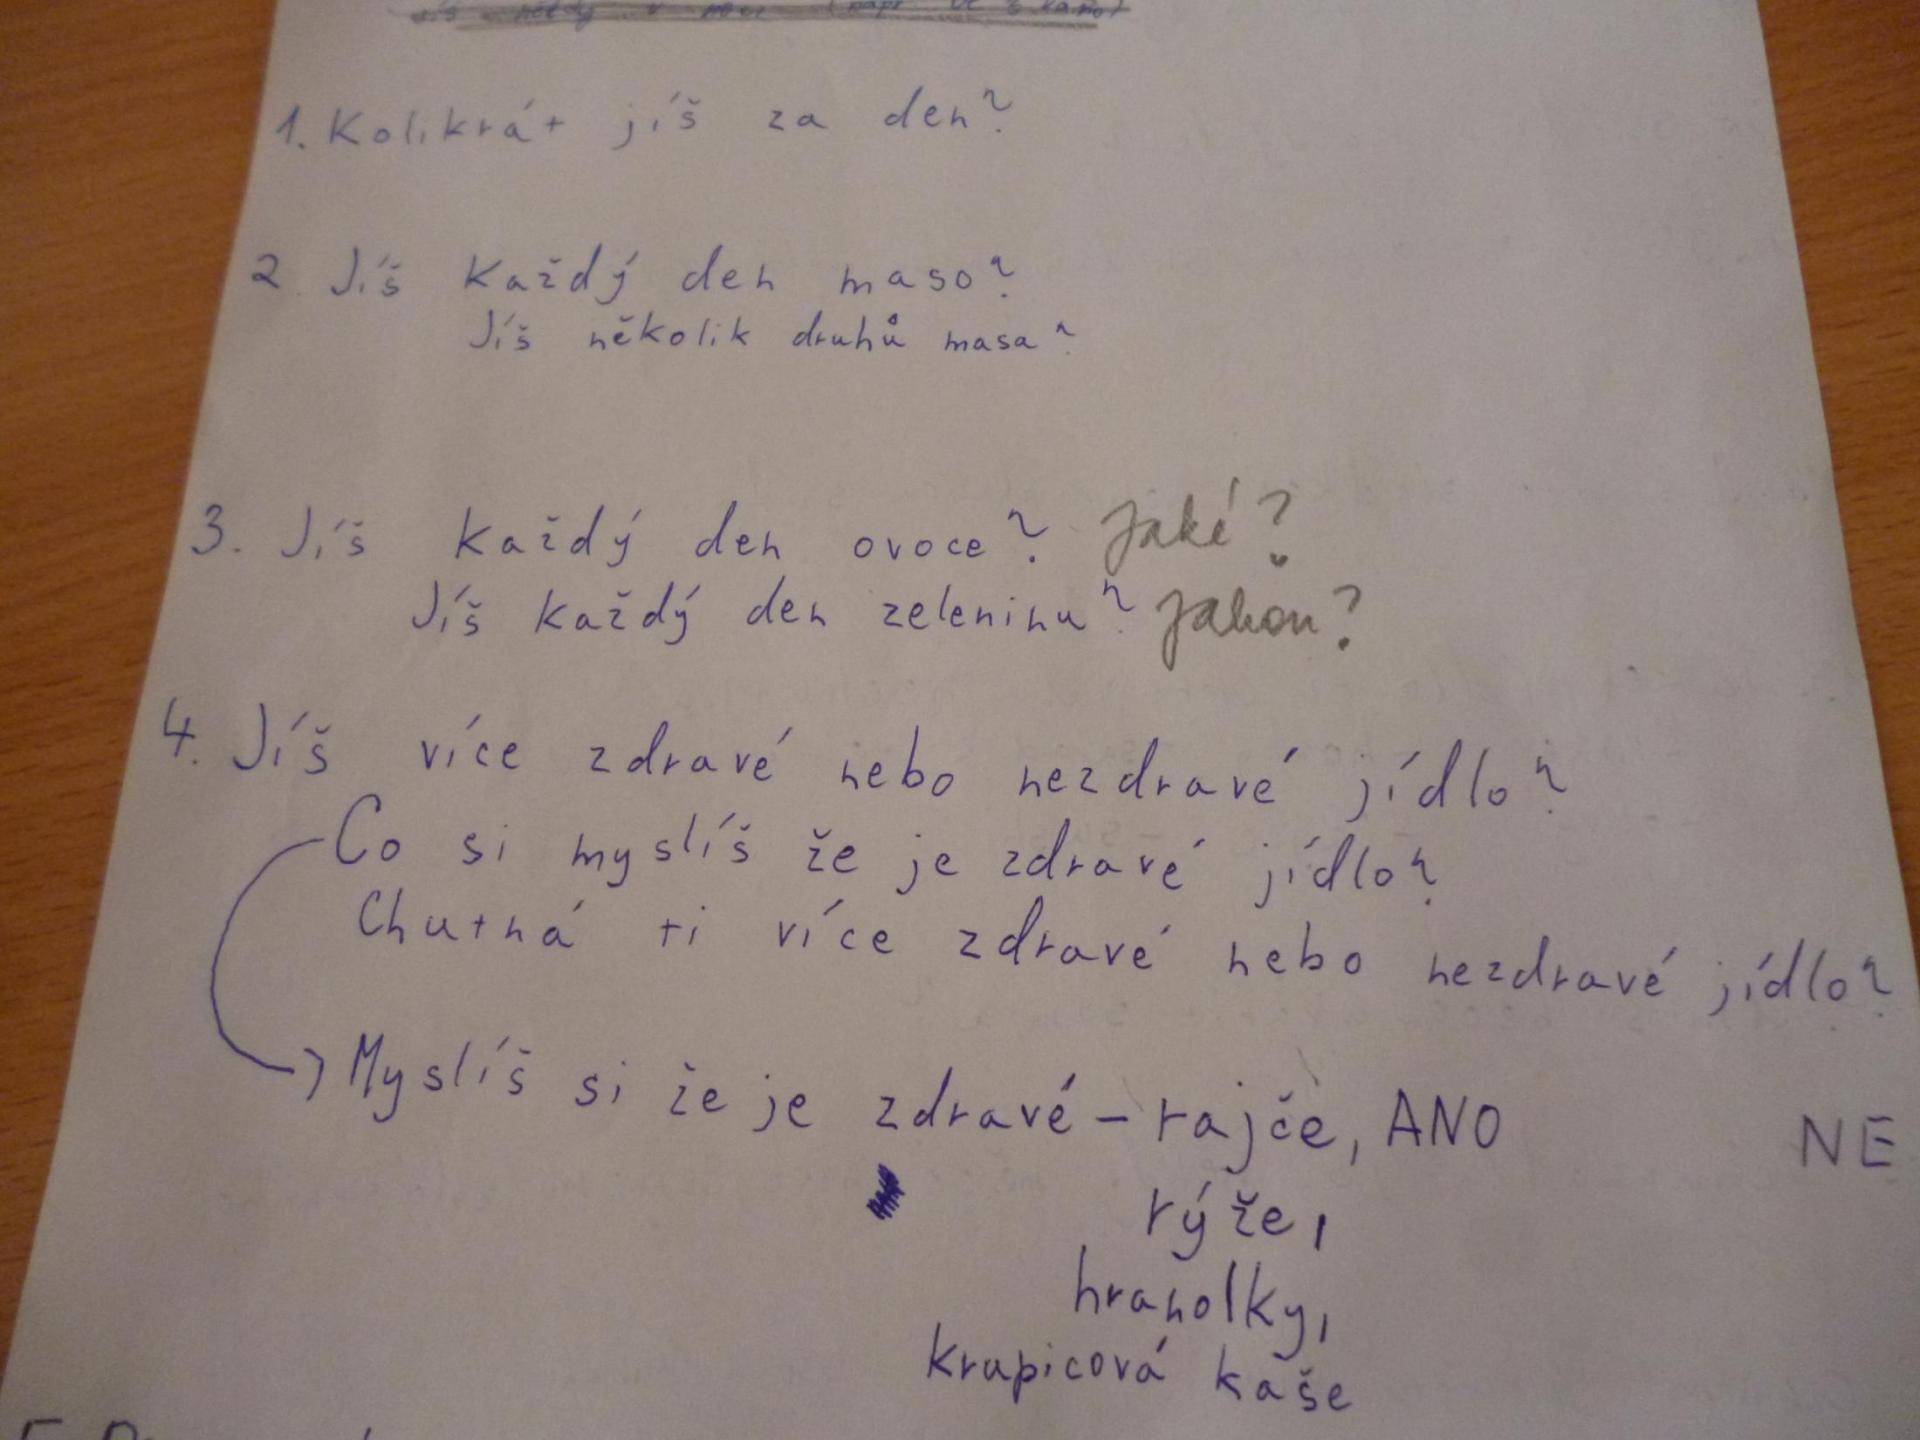 1. Kolikrát jíš za den?
2. Jíš každý den maso?
Jíš několik druhů masa?
3. Jíš každý den ovoce? Jaké?
Jíš každý den zeleninu? Jakou?
4. Jíš více zdravé nebo nezdravé jídlo?
Co si myslíš že je zdravé jídlo?
Chutná ti více zdravé nebo nezdravé jídlo?
Myslíš si že je zdravé - rajče, ANO NE
rýže,
hranolky,
krupicová kaše